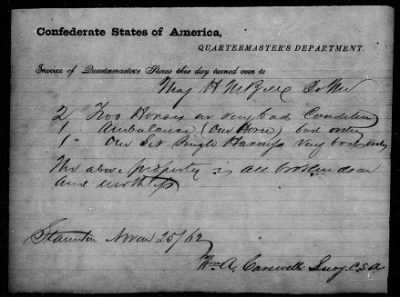 Confederate States of America,
QUARTERMASTER'S DEPARTMENT.
Invoice of Quartermasters Stores this day turned over to
Maj H M Bell
2 Two Horses in very bad Condition
1 Ambulance (One Horse) bad order
1 One Set Single Harness very bad order
The above property is all broken down
and worthless
Staunton Novem 25/62
Wm A. Carswell Surg. C S A